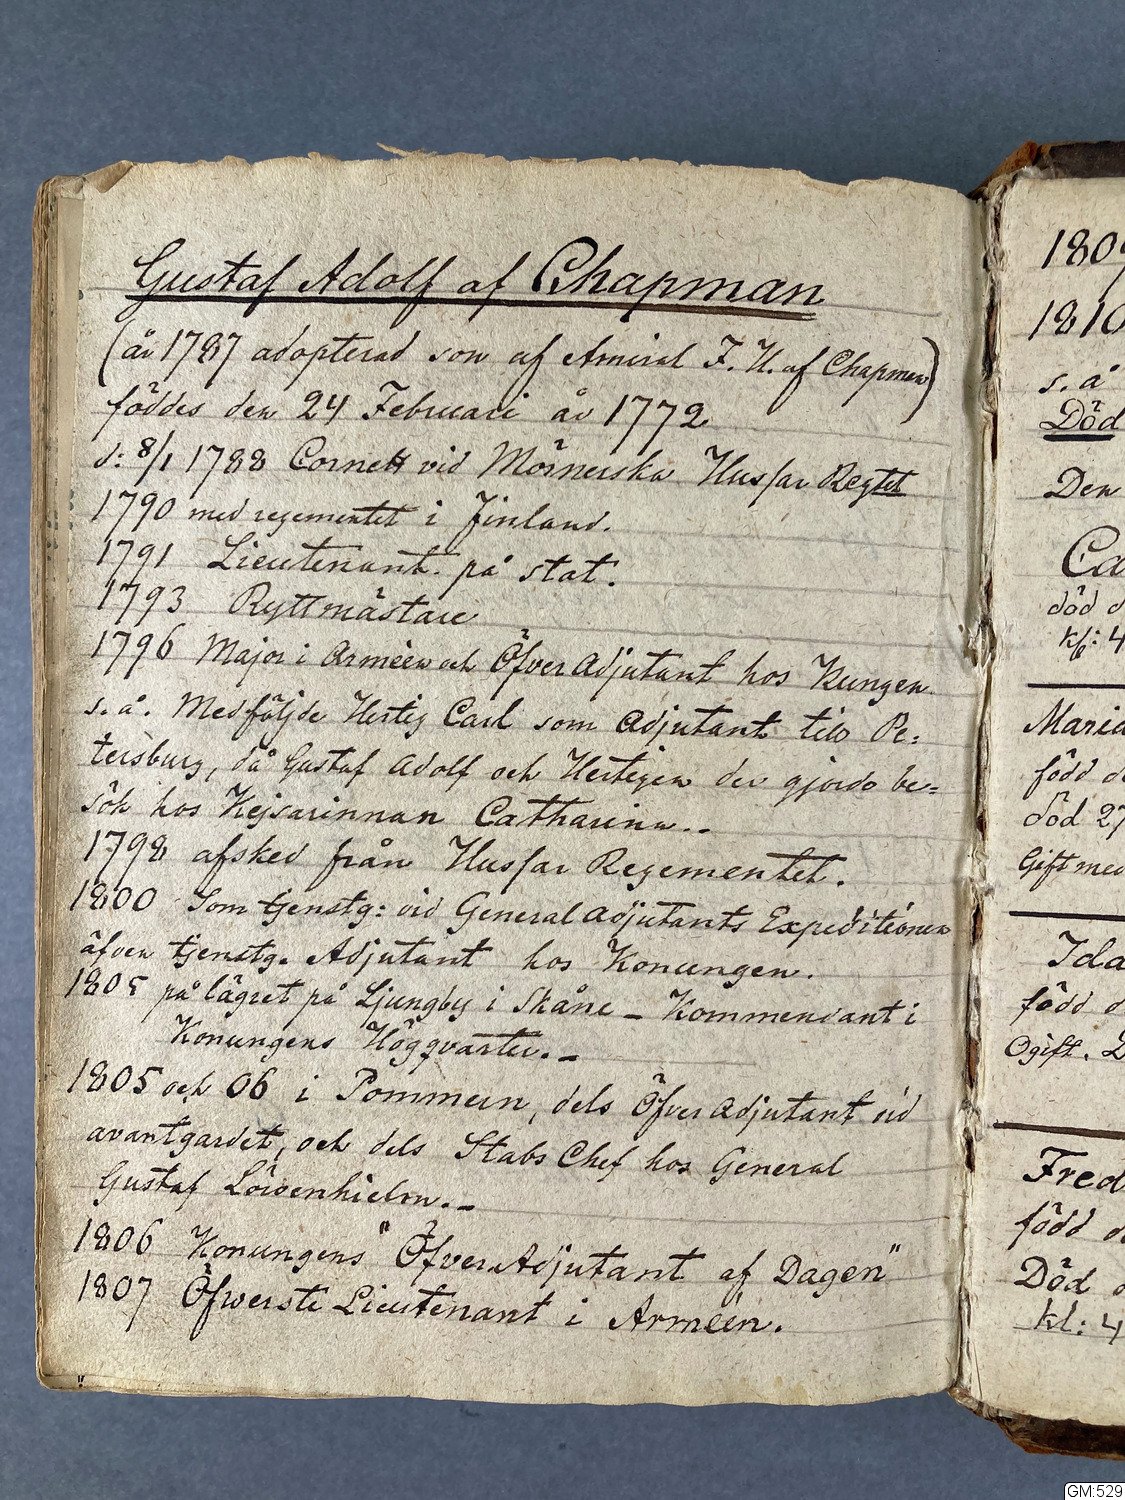 Gustaf Adolf af Chapman
(år 1787 adopterad son af Amiral F. H. af Chapman)
föddes den 24 Februari år 1772
d: 8/1 1788 Cornett vid Mörnerska Husfar Regtet
1790 med regementet i Finland.
1791 Lieutenant på stat.
1793 Ryttmästare
1796 Major i Arméen och ÖfverAdjutant hos Kungen
s. å. Medföljde Hertig Carl som Adjutant till Pe:
tersburg, då Gustaf Adolf och Hertigen der gjorde be=
sök hos Kejsarinnan Catharina..
1798 afsked från Husfar Regementet.
1800 Som tjenstg: vid GeneralAdjutants Expeditionen
äfven tjenstg. Adjutant hos Konungen.
1805 på lägret på Ljungby i Skåne – Kommendant i
Konungens Högqvarter. –
1805 och 06 i Pommern, dels ÖfverAdjutant vid
avantgardet, och dels Stabs Chef hos General
Gustaf Löwenhielm. –
1806 Konungens "ÖfverAdjutant af Dagen"
1807 Öfwerste Lieutenant i Arméen.
1809
1810
s. å
Död
Den
Ca
död d
kl: 4
Maria
född d
död 27
Gift med
Ida
född d
Ogift. D
Fred
född d
Död d
kl: 4
GM:529